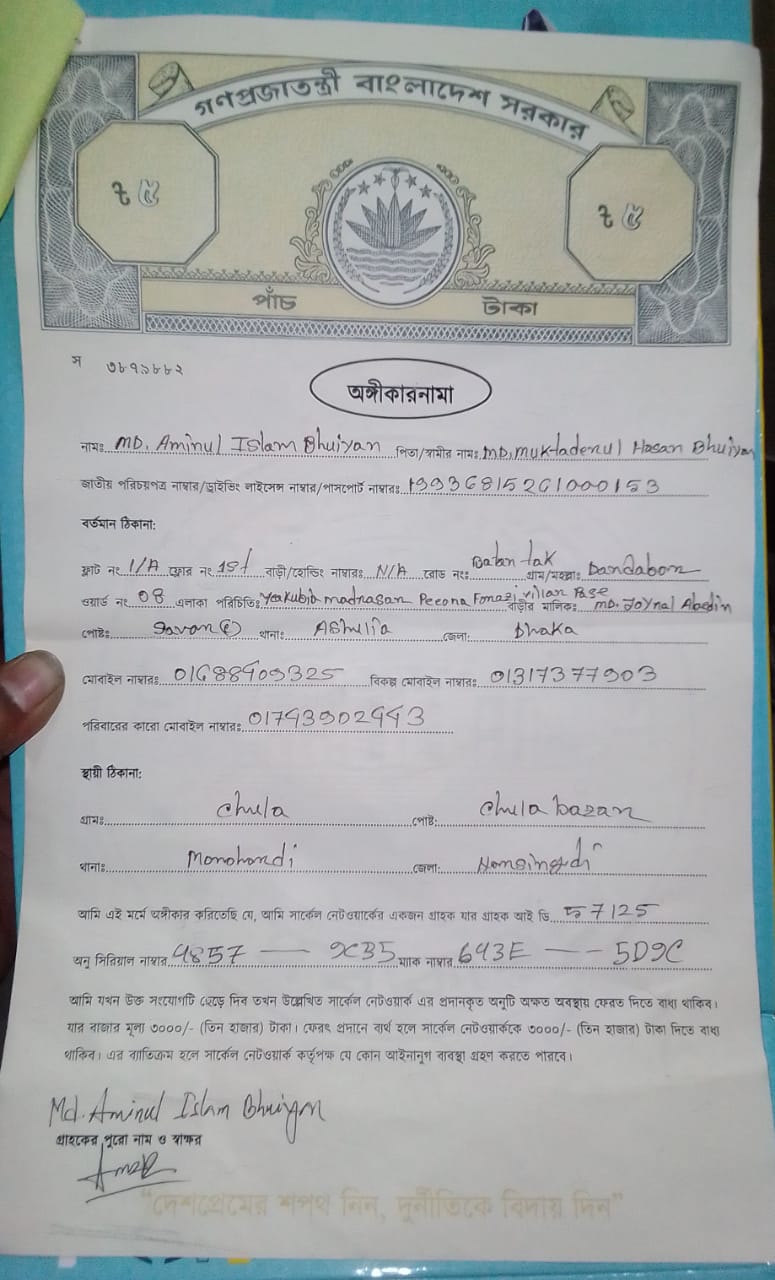 গণপ্রজাতন্ত্রী বাংলাদেশ সরকার
৳ ৫ ৳ ৫
পাঁচ টাকা
স ৩৮৭৯৮৮২
অঙ্গীকারনামা
নামঃ MD. Aminul Islam Bhuiyan পিতা/স্বামীর নামঃ MD. Muktaderul Hasan Bhuiyan
জাতীয় পরিচয়পত্র নাম্বার/ড্রাইভিং লাইসেন্স নাম্বার/পাসপোর্ট নাম্বারঃ 19936815261000153
বর্তমান ঠিকানা:
ফ্লাট নং 1/A ফ্লোর নং 1st বাড়ী/হোল্ডিং নাম্বারঃ N/A রোড নং: Batan tak গ্রাম/মহল্লা: Dandabor
ওয়ার্ড নং 08 এলাকা পরিচিতিঃ Yeakubia madrasar বাড়ীর মালিক: MD. Joynal Abedin
পোষ্ট: Savar থানা: Ashulia জেলা: Dhaka
মোবাইল নাম্বারঃ 01688409325 বিকল্প মোবাইল নাম্বারঃ 01317377903
পরিবারের কারো মোবাইল নাম্বারঃ 01743902443
স্থায়ী ঠিকানা:
গ্রামঃ Chula পোষ্ট: Chula bazar
থানাঃ Monohordi জেলা: Narsingdi
আমি এই মর্মে অঙ্গীকার করিতেছি যে, আমি সার্কেল নেটওয়ার্কের একজন গ্রাহক যার গ্রাহক আই ডি 57125
অনু সিরিয়াল নাম্বার 4857 — 9CB5 ম্যাক নাম্বার 643E — 5D9C
আমি যখন উক্ত সংযোগটি ছেড়ে দিব তখন উল্লেখিত সার্কেল নেটওয়ার্ক এর প্রদানকৃত অনুটি অক্ষত অবস্থায় ফেরত দিতে বাধ্য থাকিব।
যার বাজার মূল্য ৩০০০/- (তিন হাজার) টাকা। ফেরৎ প্রদানে ব্যর্থ হলে সার্কেল নেটওয়ার্ককে ৩০০০/- (তিন হাজার) টাকা দিতে বাধ্য
থাকিব। এর ব্যতিক্রম হলে সার্কেল নেটওয়ার্ক কর্তৃপক্ষ যে কোন আইনানুগ ব্যবস্থা গ্রহণ করতে পারবে।
Md. Aminul Islam Bhuiyan
গ্রাহকের পুরো নাম ও স্বাক্ষর
"দেশপ্রেমের শপথ নিন, দুর্নীতিকে বিদায় দিন"